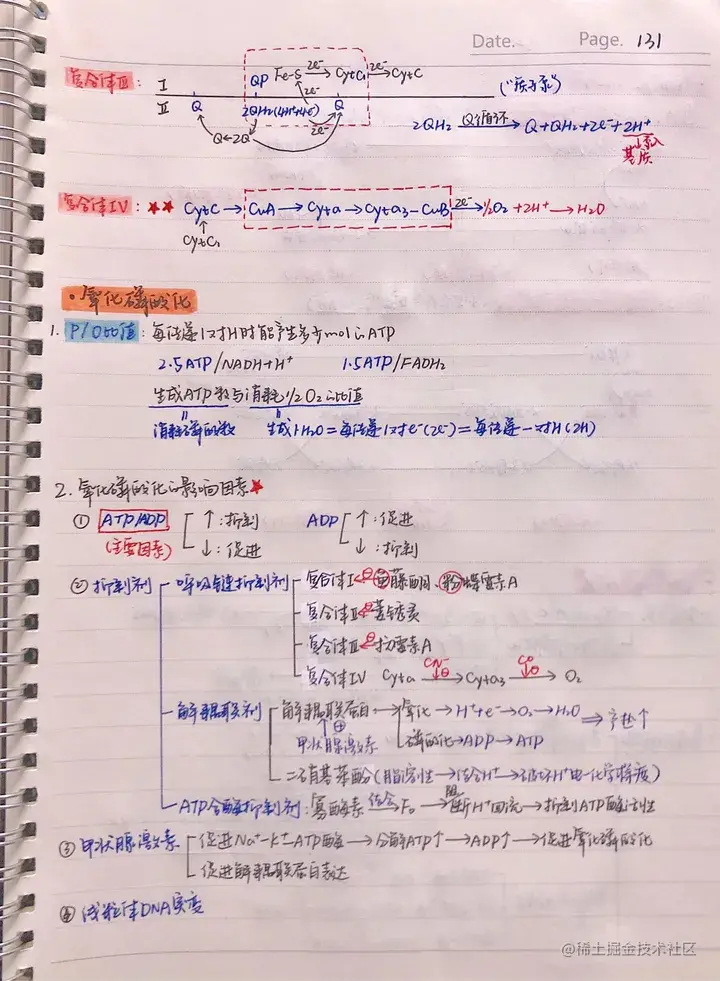 Date. Page. 131
复合体Ⅲ: Ⅰ QP Fe-S 2e⁻→ CytC₁ 2e⁻→ CytC
Ⅱ Q 2QH₂(4H⁺+4e⁻) 2e⁻ Q
Q←2Q 2e⁻
2QH₂ Q循环→ Q+QH₂+2e⁻+2H⁺
↓泵入
基质
复合体Ⅳ: ★★ CytC→CuA→Cyta→Cyta₃-CuB 2e⁻→½O₂+2H⁺→H₂O
↑
CytC₁
·氧化磷酸化
1. P/O比值: 每传递1对H时能产生多少mol的ATP
2.5ATP/NADH+H⁺ 1.5ATP/FADH₂
生成ATP数与消耗½O₂的比值
消耗磷酸数 生成1H₂O=每传递1对e⁻(2e⁻)=每传递一对H(2H)
2. 氧化磷酸化的影响因素★
① ATP/ADP ↑:抑制 ADP ↑:促进
(主要因素) ↓:促进 ↓:抑制
② 抑制剂 呼吸链抑制剂 复合体Ⅰ←⊖鱼藤酮、粉蝶霉素A
复合体Ⅱ←⊖萎锈灵
复合体Ⅲ←⊖抗霉素A
复合体Ⅳ Cyta CN⁻↓⊖→ Cyta₃ CO↓⊖→ O₂
解耦联剂 解耦联蛋白→ 氧化→H⁺+e⁻→O₂→H₂O ⇒产热↑
↑⊕
甲状腺激素 磷酸化→ADP→ATP
二硝基苯酚(脂溶性→结合H⁺→破坏H⁺电化学梯度)
ATP合酶抑制剂: 寡酶素 结合→F₀→阻断H⁺回流→抑制ATP酶活性
③ 甲状腺激素 促进Na⁺-K⁺-ATP酶→分解ATP↑→ADP↑→促进氧化磷酸化
促进解耦联蛋白表达
④ 线粒体DNA突变
@稀土掘金技术社区